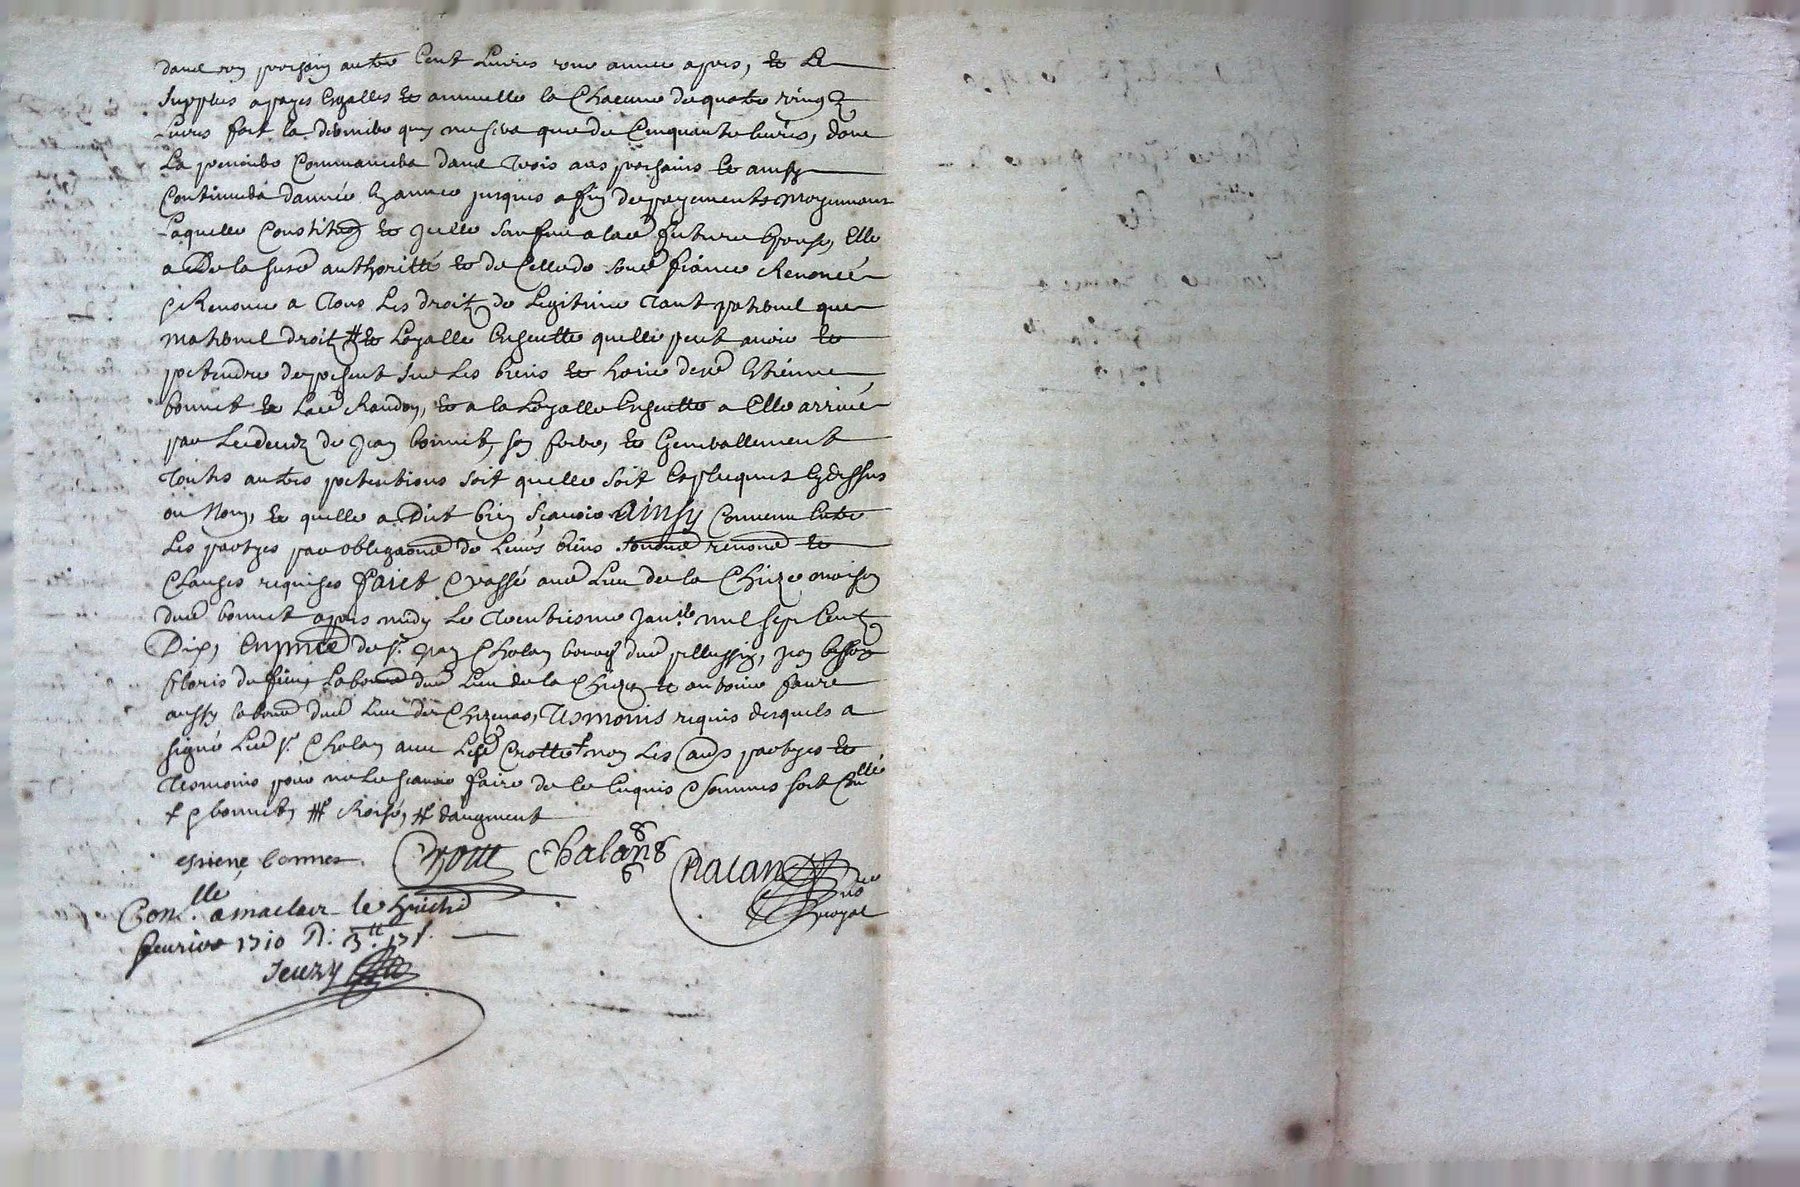 dans un prochain autre Cent Livres une année apres, et Le
surpplus a payes Esgalles et annuelle la Chacune de quatre vingz
Livres fort la derniere quy ne sera que de Cinquante livres, dont
La premiere Commancera dans trois ans prochains et ainsy
Continuera d'année En année jusques a fin de payement moyennant
Laquelle Constitu͠on et jcelle sauf faire a lad future Espouse, Elle
a De la susd authoritté et de Celle de sond fiance Renoncé
& Renonce a Tous Les droitz de Legitime Tant paternel que
maternel droitz # et Loyalle Escheutte quelle peut avoir et
pretendre de present sur Les biens et hoirie desd Estienne
bonnet et Lad Randon, et a la Loyalle Escheutte a Elle arrivé
par Le deceds de Jean bonnet, son frere, et Generallement
Toutes autres pretentions soit quelle soit Expliquées Cydessus
ou Non, et quelle a Dict bien sçavoir Ainsy Convenu Entre
Les partyes par obliga͠on de Leurs biens renon͠ et
Clauses requises faict & passé aud Lieu de la Chieze maison
dud bonnet apres midy Le Trentiesme Janr mil sept Centz
Dix, En presce de sr Jean Chalan dud pellussin, jean
floris du Labour dud Lieu de la Chieze et antoine faure
aussy labour dud Lieu de Chezenas, Tesmoins requis desquels a
signé Led sr Chalan avec Led Crotte + non Les aus partyes et
Tesmoins pour ne Le sçavoir faire de Ce Enquis & sommés soit Conllé
+ & bonnet, ## Roisé, # d'augment
estiene bonnet Crotte Chalan Chalan nore
royal
Conllé a maclair le huictie
feurier 1710 R. 3tt 17s.
Jeury